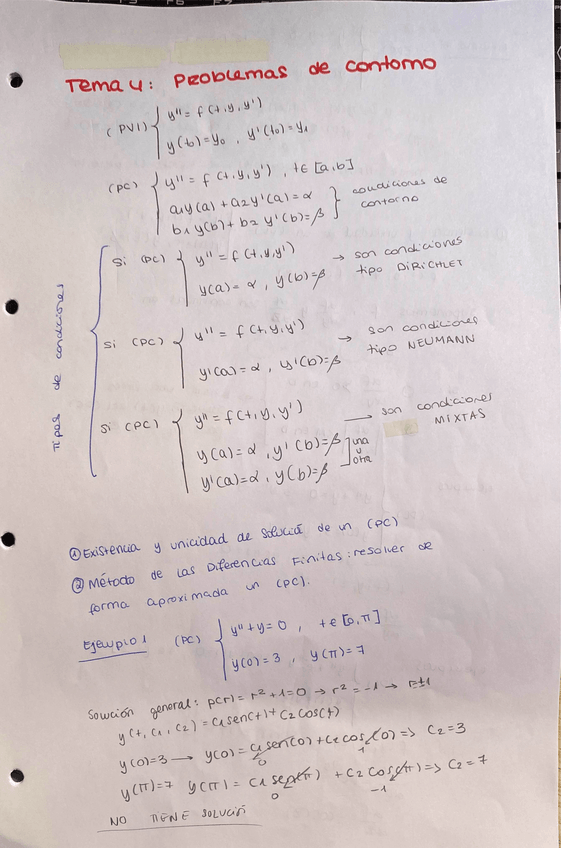 Tema 4: Problemas de contorno
(PVI) { y'' = f(t,y,y')
y(t₀)=y₀ , y'(t₀)=y₁
(PC) { y'' = f(t,y,y') , t∈[a,b]
a₁y(a) + a₂y'(a) = α
b₁y(b) + b₂y'(b) = β } condiciones de contorno
Tipos de condiciones
Si (PC) { y'' = f(t,y,y') → son condiciones
y(a)=α , y(b)=β tipo DIRICHLET
Si (PC) { y'' = f(t,y,y') → son condiciones
y'(a)=α , y'(b)=β tipo NEUMANN
Si (PC) { y'' = f(t,y,y') → son condiciones
MIXTAS
y(a)=α , y'(b)=β ] una
y
y'(a)=α , y(b)=β otra
① Existencia y unicidad de solución de un (PC)
② Método de las Diferencias Finitas: resolver de
forma aproximada un (PC).
Ejemplo 1 (PC) { y''+y=0 , t∈[0,π]
y(0)=3 , y(π)=7
Solución general: p(r)= r²+1=0 → r²=-1 → r=±i
y(t,c₁,c₂)=c₁sen(t)+c₂cos(t)
y(0)=3 → y(0)=c₁sen(0)+c₂cos(0) ⇒ c₂=3
0 1
y(π)=7 y(π)=c₁sen(π) + c₂cos(π) ⇒ c₂=7
0 -1
NO TIENE SOLUCIÓN